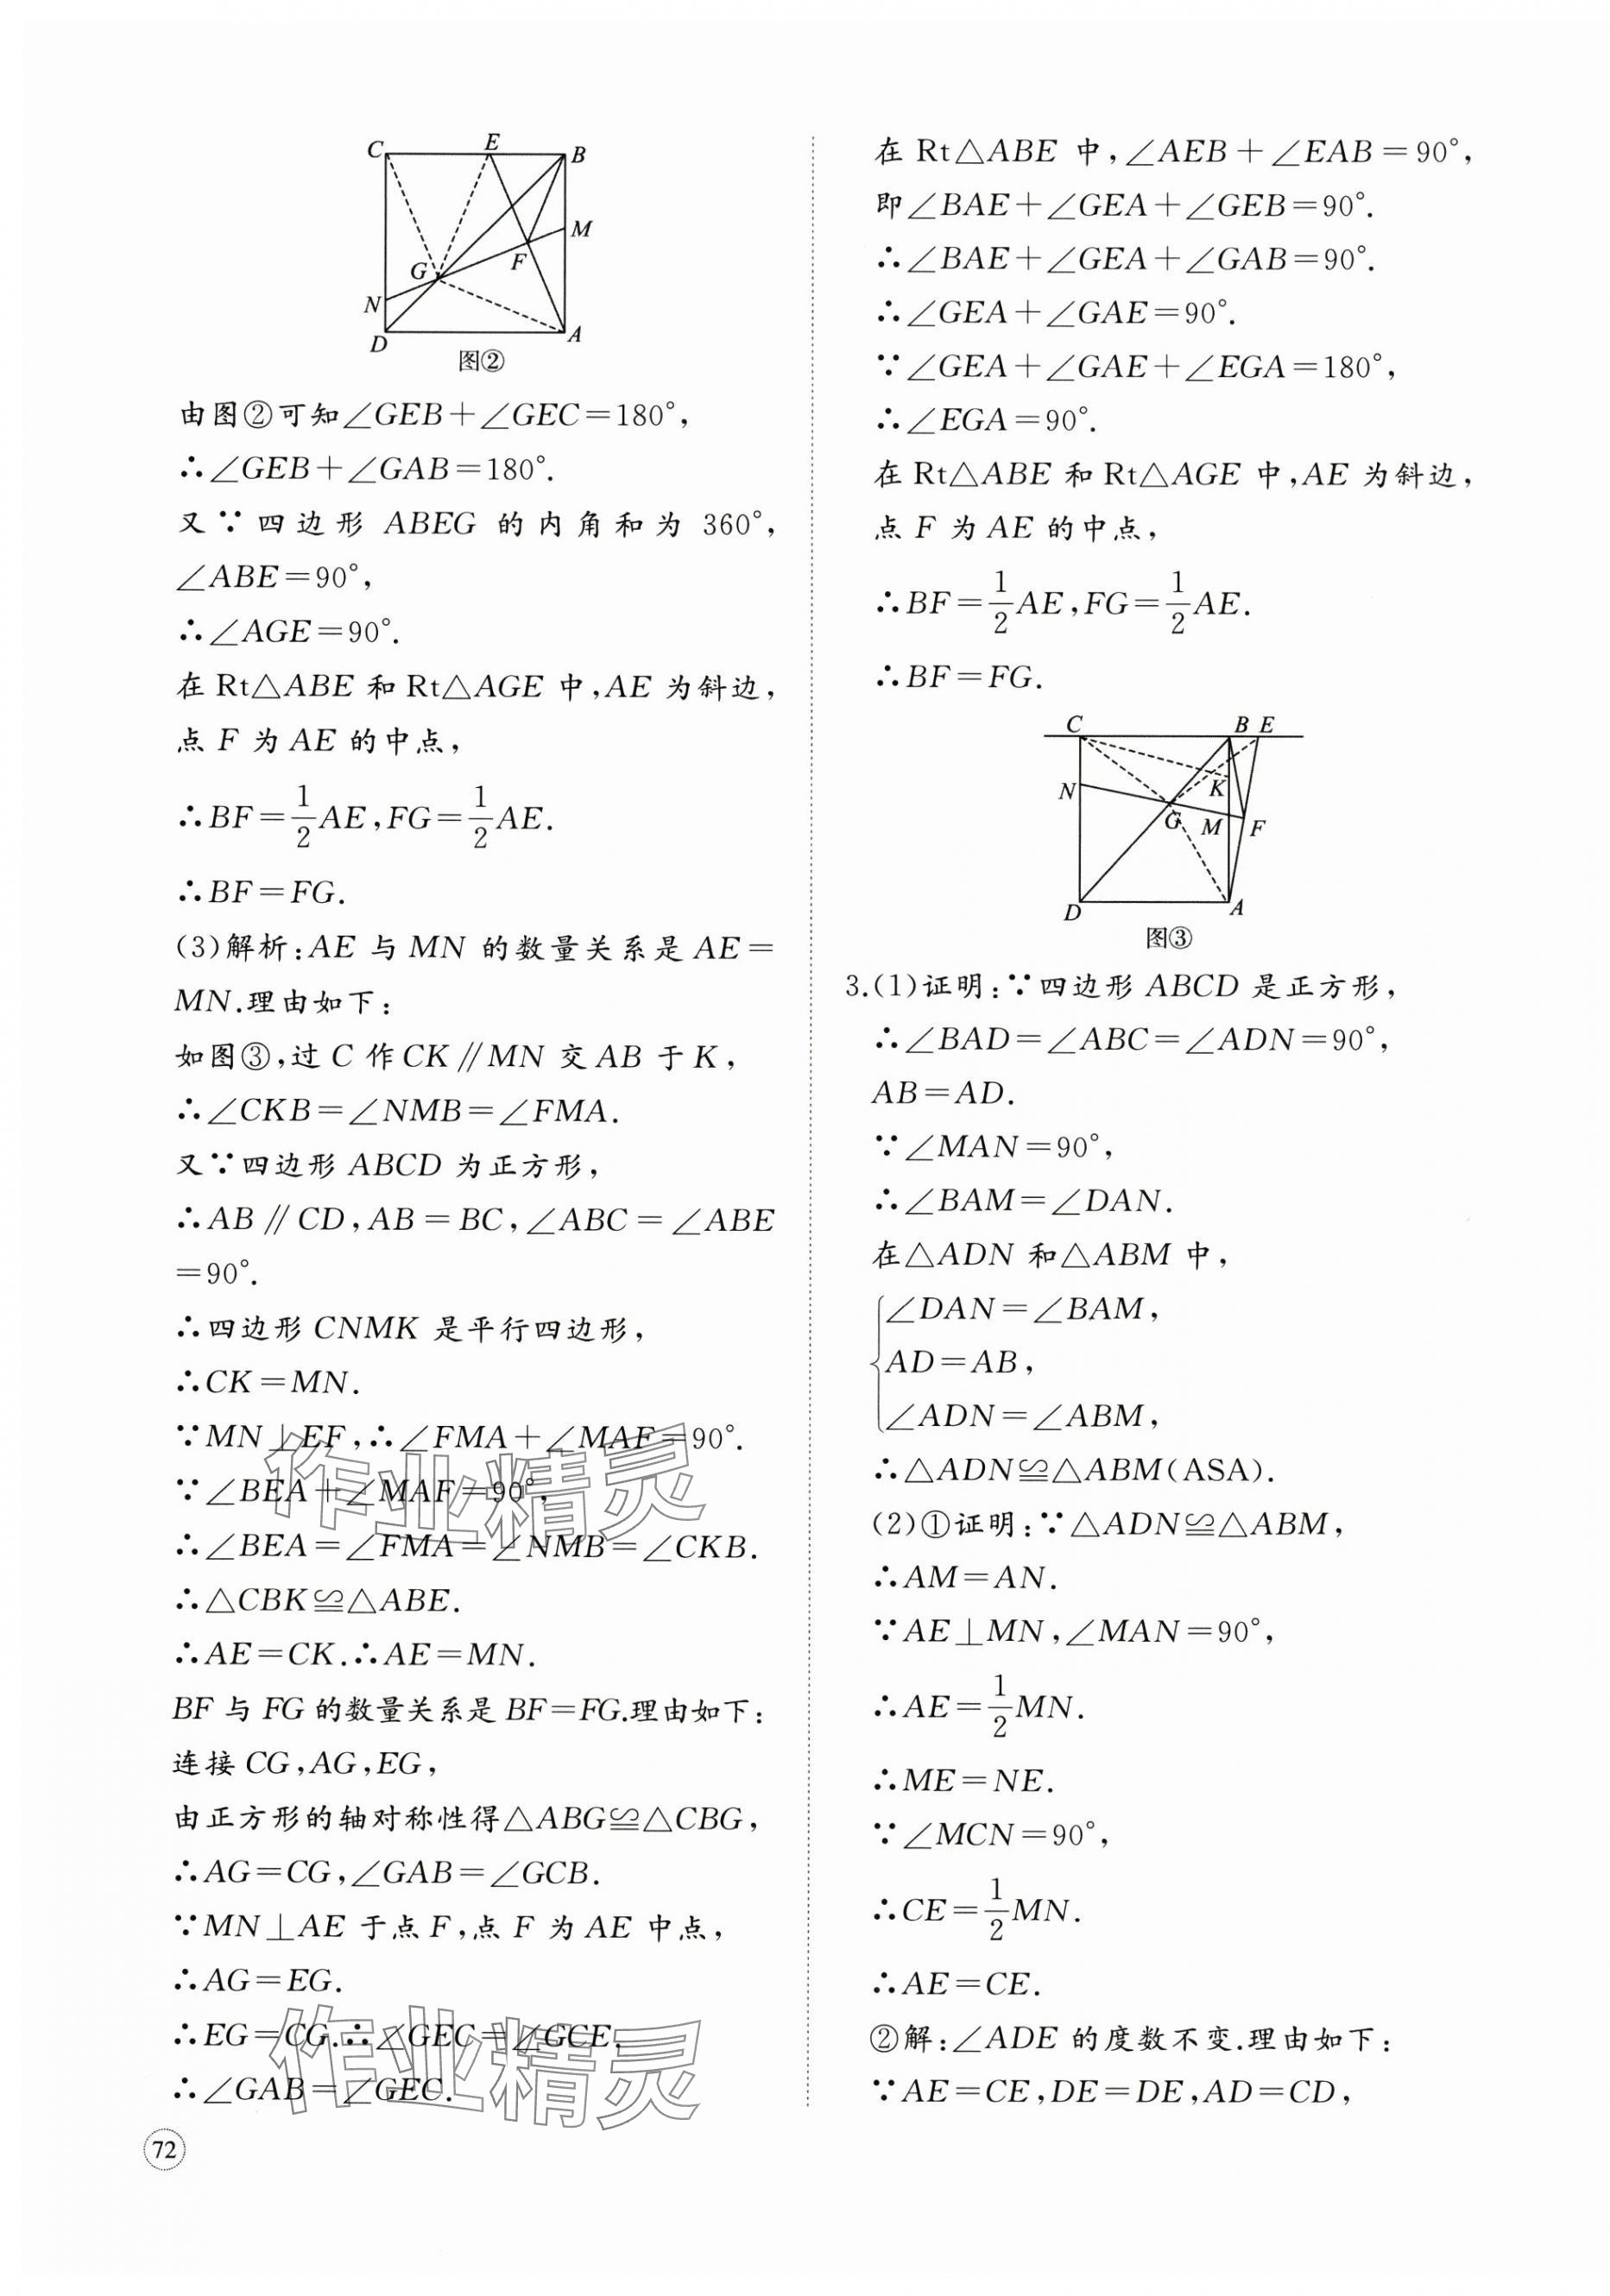 C E B
M
G F
N
D A
图②
由图②可知∠GEB+∠GEC=180°,
∴∠GEB+∠GAB=180°.
又∵四边形 ABEG 的内角和为 360°,
∠ABE=90°,
∴∠AGE=90°.
在 Rt△ABE 和 Rt△AGE 中,AE 为斜边,
点 F 为 AE 的中点,
∴BF=1/2AE,FG=1/2AE.
∴BF=FG.
(3)解析:AE 与 MN 的数量关系是 AE=
MN.理由如下:
如图③,过 C 作 CK∥MN 交 AB 于 K,
∴∠CKB=∠NMB=∠FMA.
又∵四边形 ABCD 为正方形,
∴AB∥CD,AB=BC,∠ABC=∠ABE
=90°.
∴四边形 CNMK 是平行四边形,
∴CK=MN.
∵MN⊥EF,∴∠FMA+∠MAF=90°.
∵∠BEA+∠MAF=90°,
∴∠BEA=∠FMA=∠NMB=∠CKB.
∴△CBK≌△ABE.
∴AE=CK.∴AE=MN.
BF 与 FG 的数量关系是 BF=FG.理由如下:
连接 CG,AG,EG,
由正方形的轴对称性得△ABG≌△CBG,
∴AG=CG,∠GAB=∠GCB.
∵MN⊥AE 于点 F,点 F 为 AE 中点,
∴AG=EG.
∴EG=CG.∴∠GEC=∠GCE.
∴∠GAB=∠GEC.
在 Rt△ABE 中,∠AEB+∠EAB=90°,
即∠BAE+∠GEA+∠GEB=90°.
∴∠BAE+∠GEA+∠GAB=90°.
∴∠GEA+∠GAE=90°.
∵∠GEA+∠GAE+∠EGA=180°,
∴∠EGA=90°.
在 Rt△ABE 和 Rt△AGE 中,AE 为斜边,
点 F 为 AE 的中点,
∴BF=1/2AE,FG=1/2AE.
∴BF=FG.
C B E
N K
G M F
D A
图③
3.(1)证明:∵四边形 ABCD 是正方形,
∴∠BAD=∠ABC=∠ADN=90°,
AB=AD.
∵∠MAN=90°,
∴∠BAM=∠DAN.
在△ADN 和△ABM 中,
∠DAN=∠BAM,
AD=AB,
∠ADN=∠ABM,
∴△ADN≌△ABM(ASA).
(2)①证明:∵△ADN≌△ABM,
∴AM=AN.
∵AE⊥MN,∠MAN=90°,
∴AE=1/2MN.
∴ME=NE.
∵∠MCN=90°,
∴CE=1/2MN.
∴AE=CE.
②解:∠ADE 的度数不变.理由如下:
∵AE=CE,DE=DE,AD=CD,
72
作业精灵
作业精灵